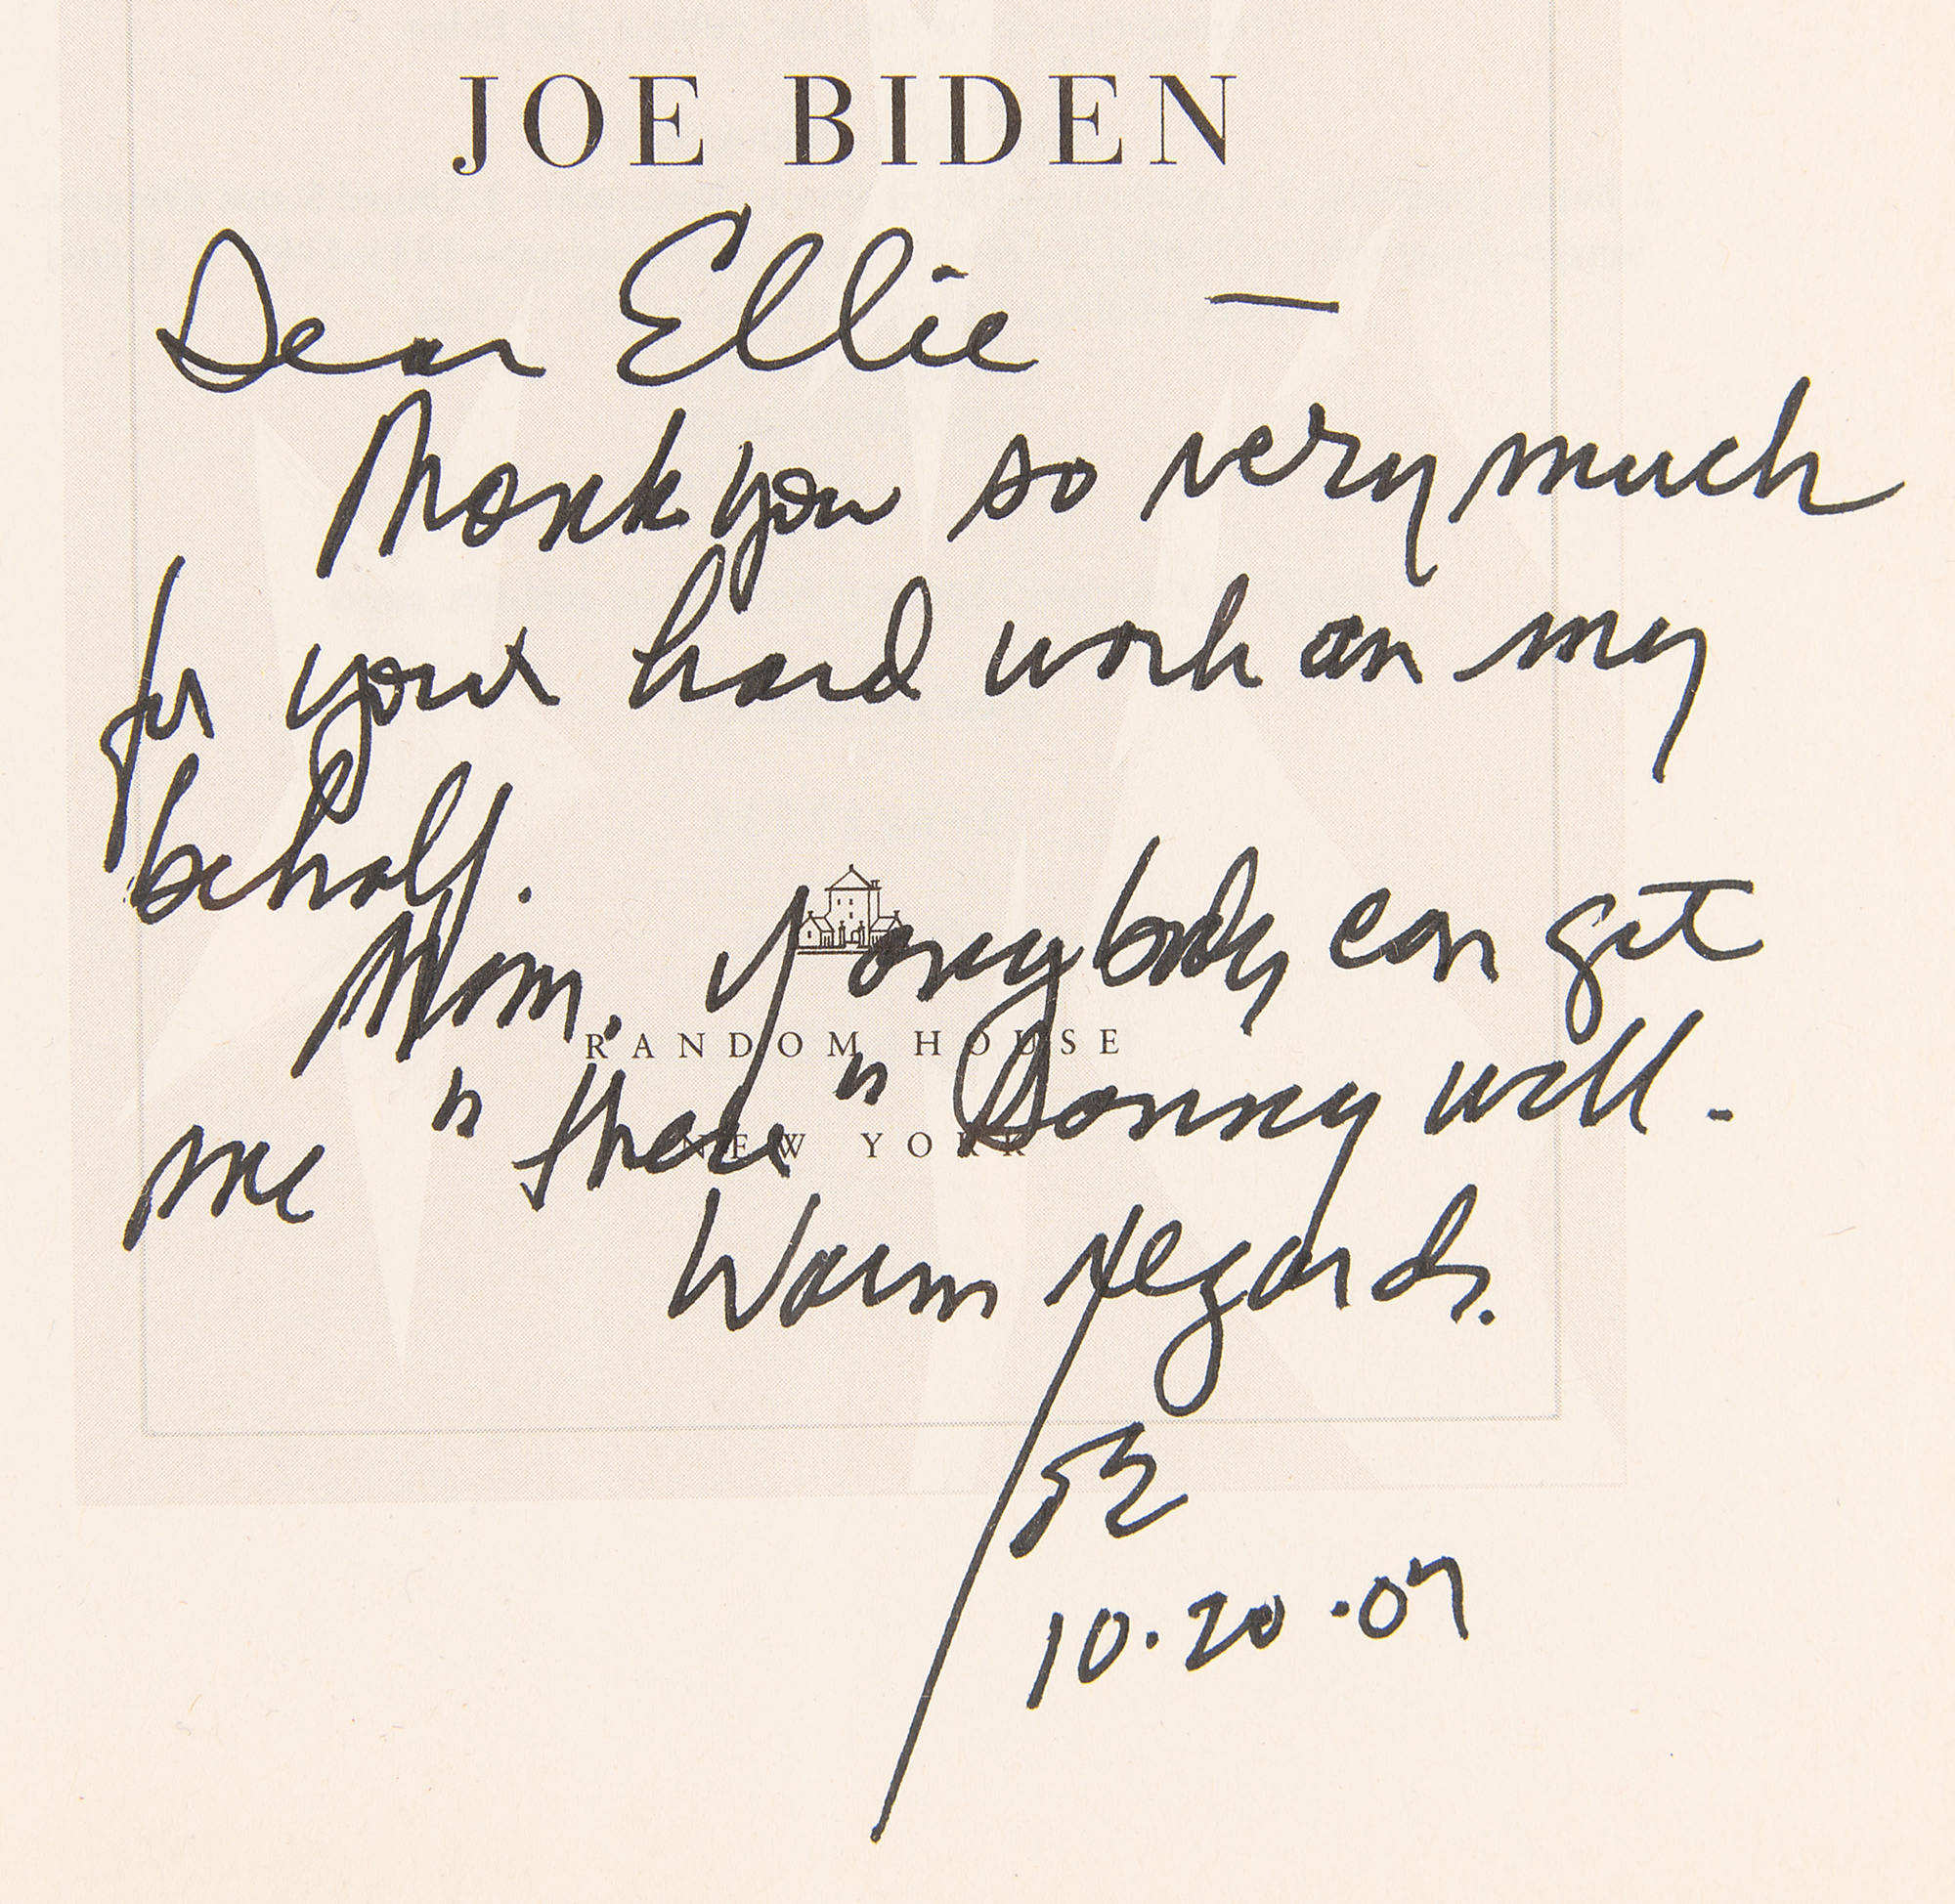 JOE BIDEN
Dear Ellie —
Thank you so very much
for your hard work on my
behalf.
Mom. if anybody can get
RANDOM HOUSE
me "there" Sonny will.
NEW YORK
Warm regards.
10.20.07